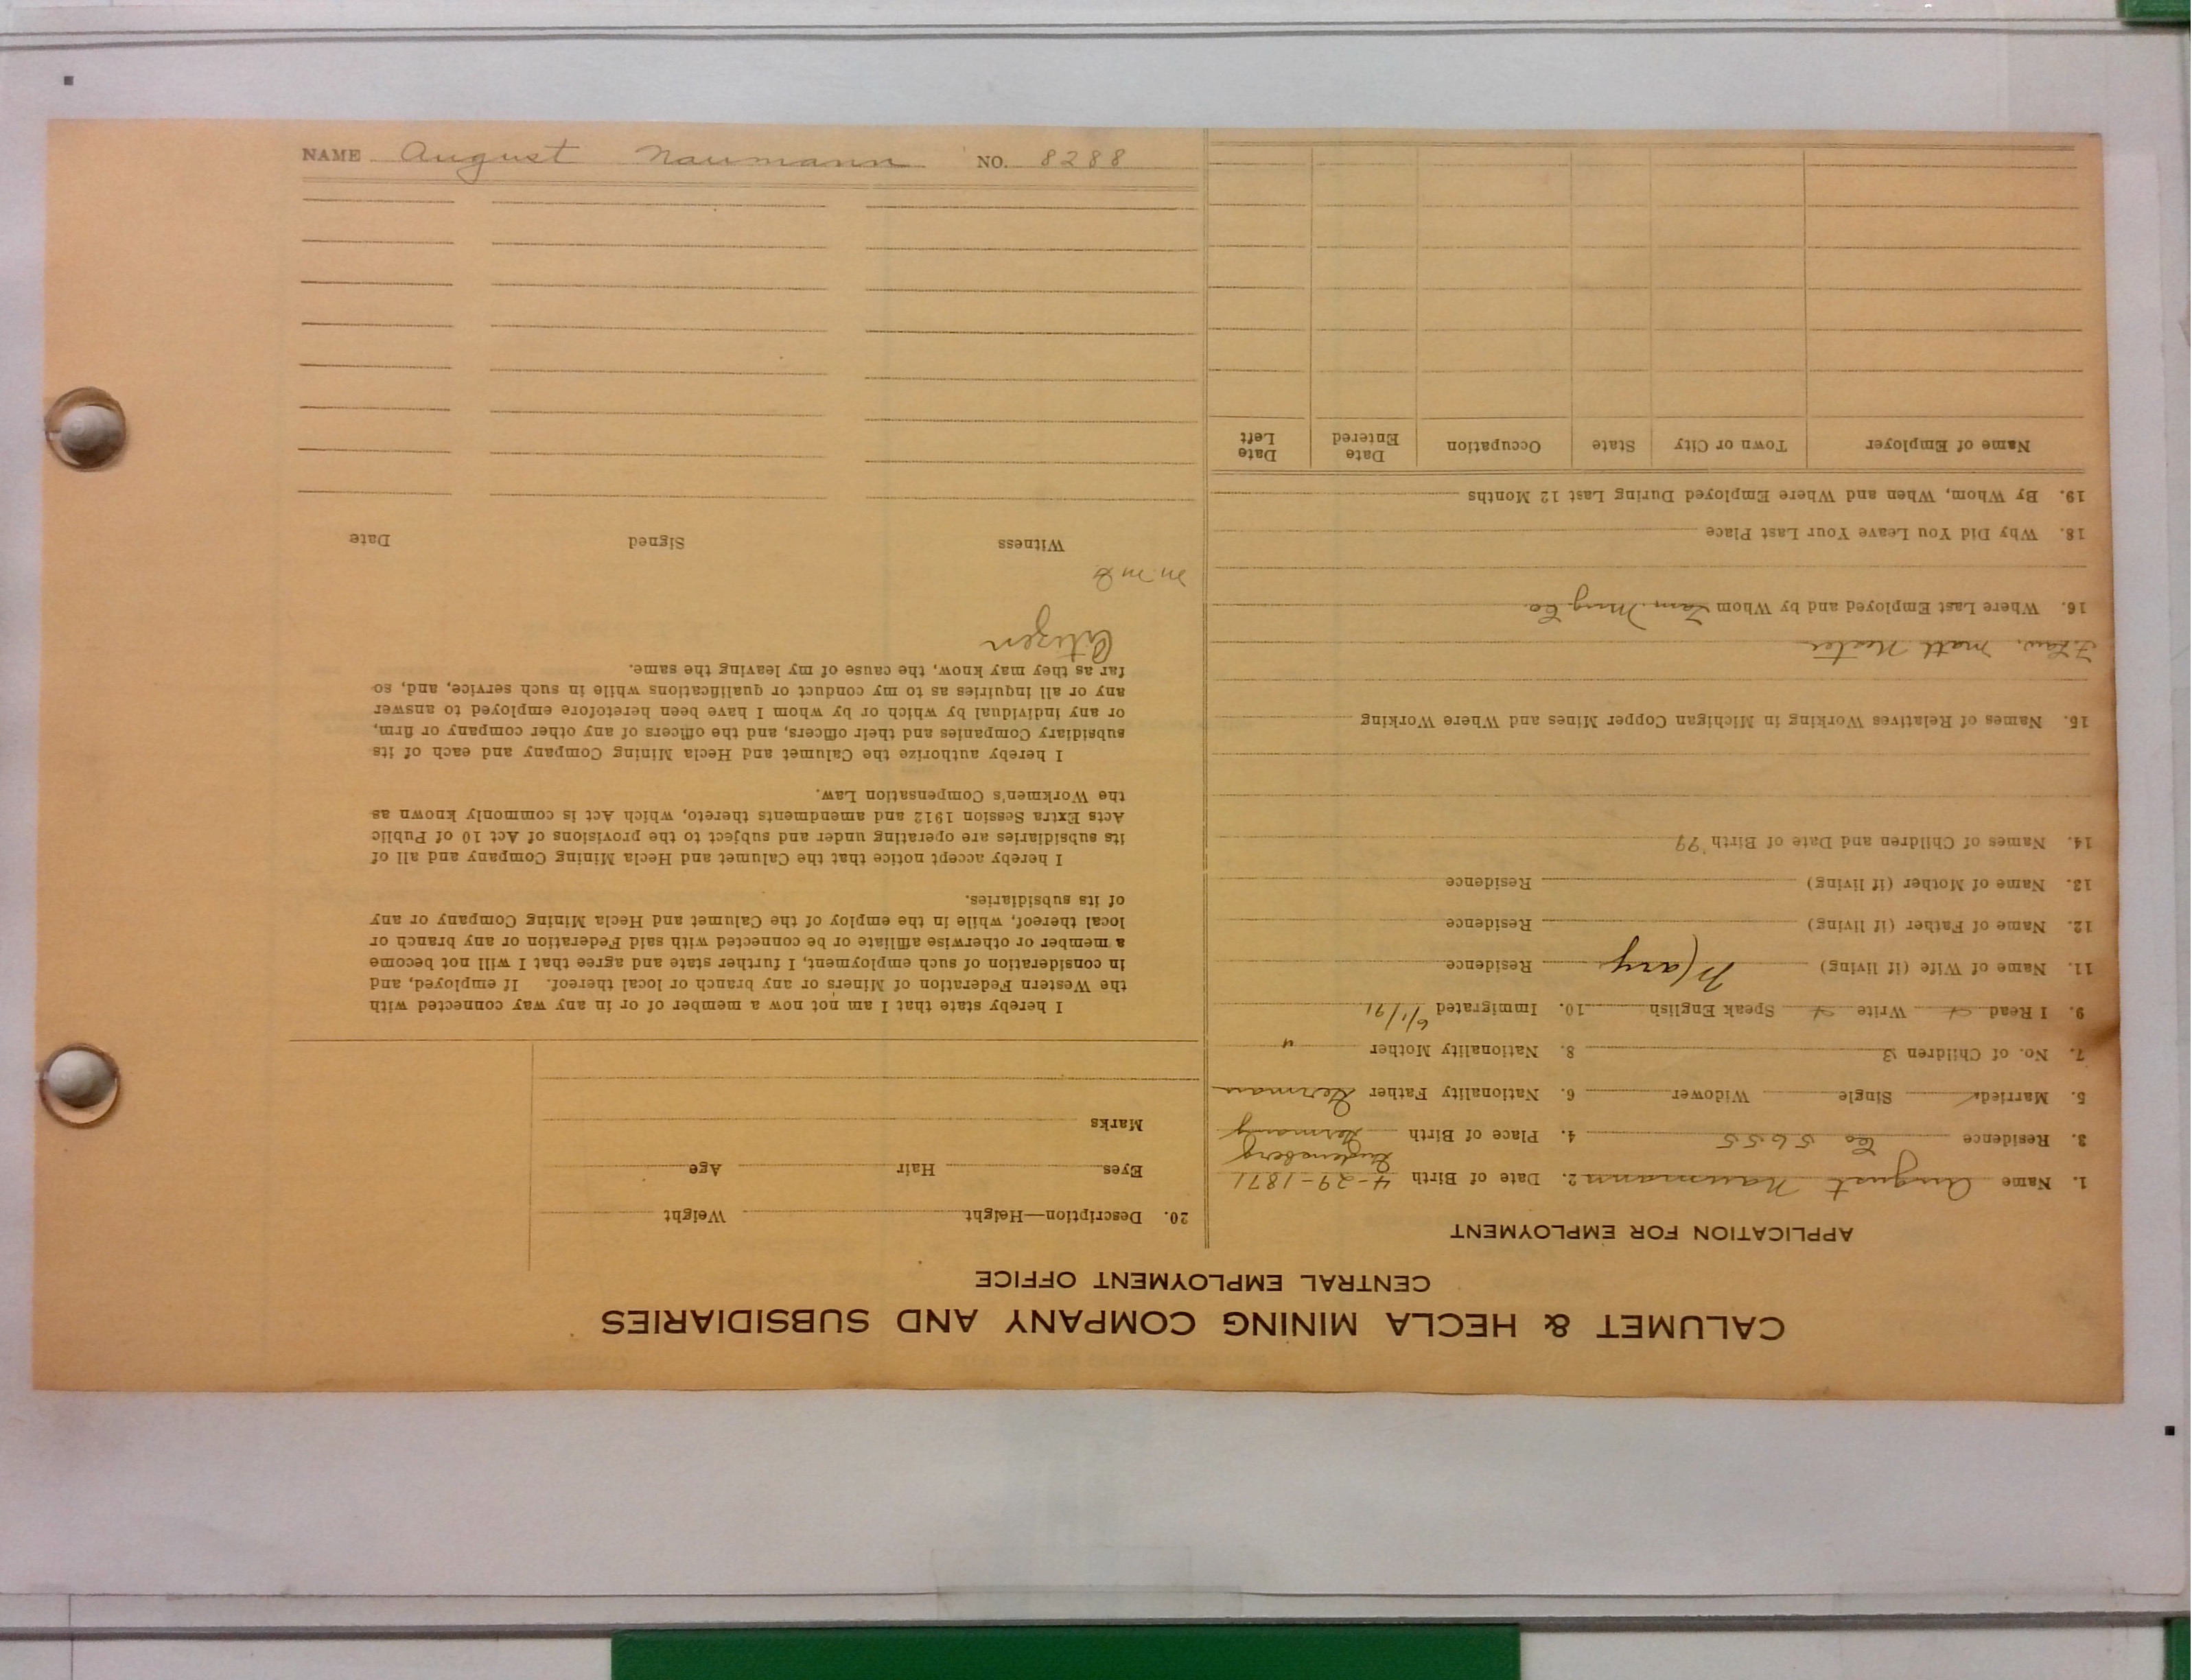 CALUMET & HECLA MINING COMPANY AND SUBSIDIARIES
CENTRAL EMPLOYMENT OFFICE
APPLICATION FOR EMPLOYMENT
1. Name August Naumann 2. Date of Birth 4-29-1871
3. Residence Co 5655 4. Place of Birth Germany
5. Married ✓ Single Widower 6. Nationality Father German
7. No. of Children 3 8. Nationality Mother "
9. I Read Write Speak English 10. Immigrated 6/1/91
11. Name of Wife (if living) Mary Residence
12. Name of Father (if living) Residence
13. Name of Mother (if living) Residence
14. Names of Children and Date of Birth '99
15. Names of Relatives Working in Michigan Copper Mines and Where Working
Matt
16. Where Last Employed and by Whom Tam. Mng Co.
18. Why Did You Leave Your Last Place
19. By Whom, When and Where Employed During Last 12 Months
Name of Employer Town or City State Occupation Date Entered Date Left
20. Description—Height Weight
Eyes Hair Age
Marks
I hereby state that I am not now a member of or in any way connected with
the Western Federation of Miners or any branch or local thereof. If employed, and
in consideration of such employment, I further state and agree that I will not become
a member or otherwise affiliate or be connected with said Federation or any branch or
local thereof, while in the employ of the Calumet and Hecla Mining Company or any
of its subsidiaries.
I hereby accept notice that the Calumet and Hecla Mining Company and all of
its subsidiaries are operating under and subject to the provisions of Act 10 of Public
Acts Extra Session 1912 and amendments thereto, which Act is commonly known as
the Workmen's Compensation Law.
I hereby authorize the Calumet and Hecla Mining Company and each of its
subsidiary Companies and their officers, and the officers of any other company or firm,
or any individual by which or by whom I have been heretofore employed to answer
any or all inquiries as to my conduct or qualifications while in such service, and, so
far as they may know, the cause of my leaving the same.
Citizen
Witness Signed Date
NAME August Naumann NO. 8288